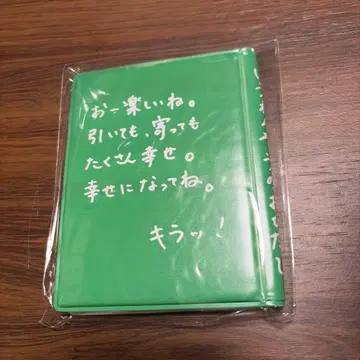 おー楽しいね。
引いても、寄っても
たくさん幸せ。
幸せになってね。
キラッ!